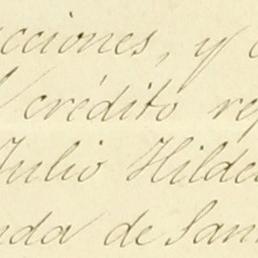 cciones, y
crédito re
Julio Hilde
nda de San